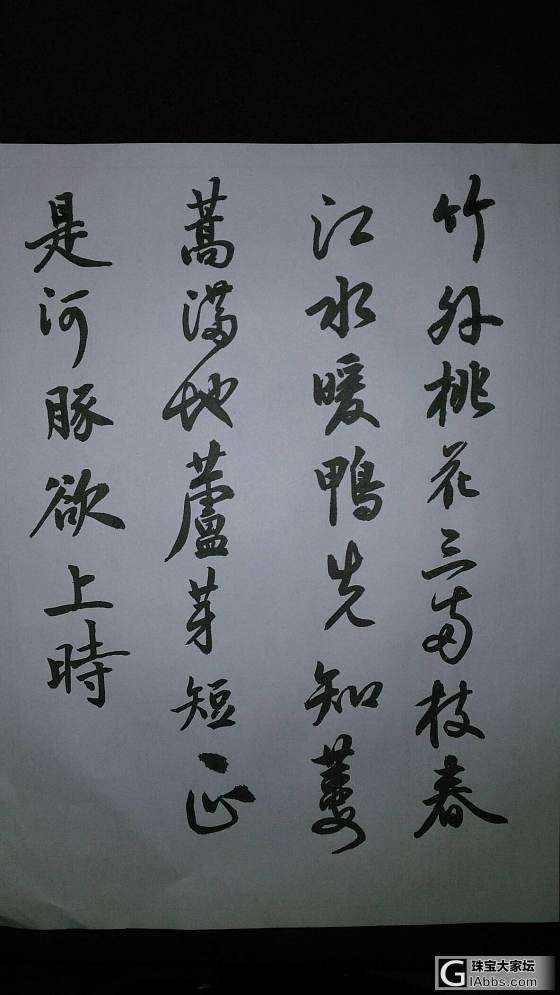 竹外桃花三两枝春
江水暖鴨先知蔞
蒿满地蘆芽短正
是河豚欲上時
珠宝大家坛
GIAbbs.com